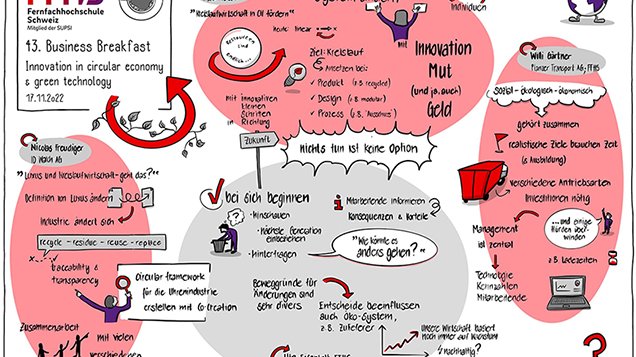 FFHS
Fernfachhochschule
Schweiz
Mitglied der SUPSI
13. Business Breakfast
Innovation in circular economy
& green technology
17.11.2022
Kreislaufwirtschaft in CH fördern"
heute: linear
Ziel: Kreislauf
Ansetzen bei:
✓ Produkt (z.B. recycled)
✓ Design (z.B. modular)
✓ Prozess (z.B. "Ausschuss")
mit innovativen
kleinen
Schritten
in
Richtung
Zukunft
mit
Innovation
Mut
(und ja, auch)
Geld
Individuen
nichts tun ist keine Option
Willi Gärtner
Planzer Transport AG, FFHS
Sozial - ökologisch - ökonomisch
gehört zusammen
realistische Ziele brauchen Zeit
(& Ausbildung)
verschiedene Antriebsarten
Investitionen nötig
Management
ist zentral
...und einige
Hürden über-
winden
z.B. Ladezeiten
Technologie
Kennzahlen
Mitarbeitende
Nicolas Freudiger
ID Watch AG
"Luxus und Kreislaufwirtschaft - geht das?"
Definition von Luxus ändern
Industrie ändert sich
recycle - residue - reuse - replace
traceability &
transparency
Circular framework
für die Uhrenindustrie
erstellen mit Co-Creation
Zusammenarbeit
mit vielen
verschiedenen
bei sich beginnen
- Hinschauen
- Nächste Generation
einbeziehen
- Hinterfragen
Mitarbeitende informieren
Konsequenzen & Vorteile
"Wie könnte es
anders gehen?"
Beweggründe für
Änderungen sind
sehr divers
Entscheide beeinflussen
auch Öko-System,
z.B. Zulieferer
"Unsere Wirtschaft basiert
noch immer auf Wachstum!
nachhaltig?